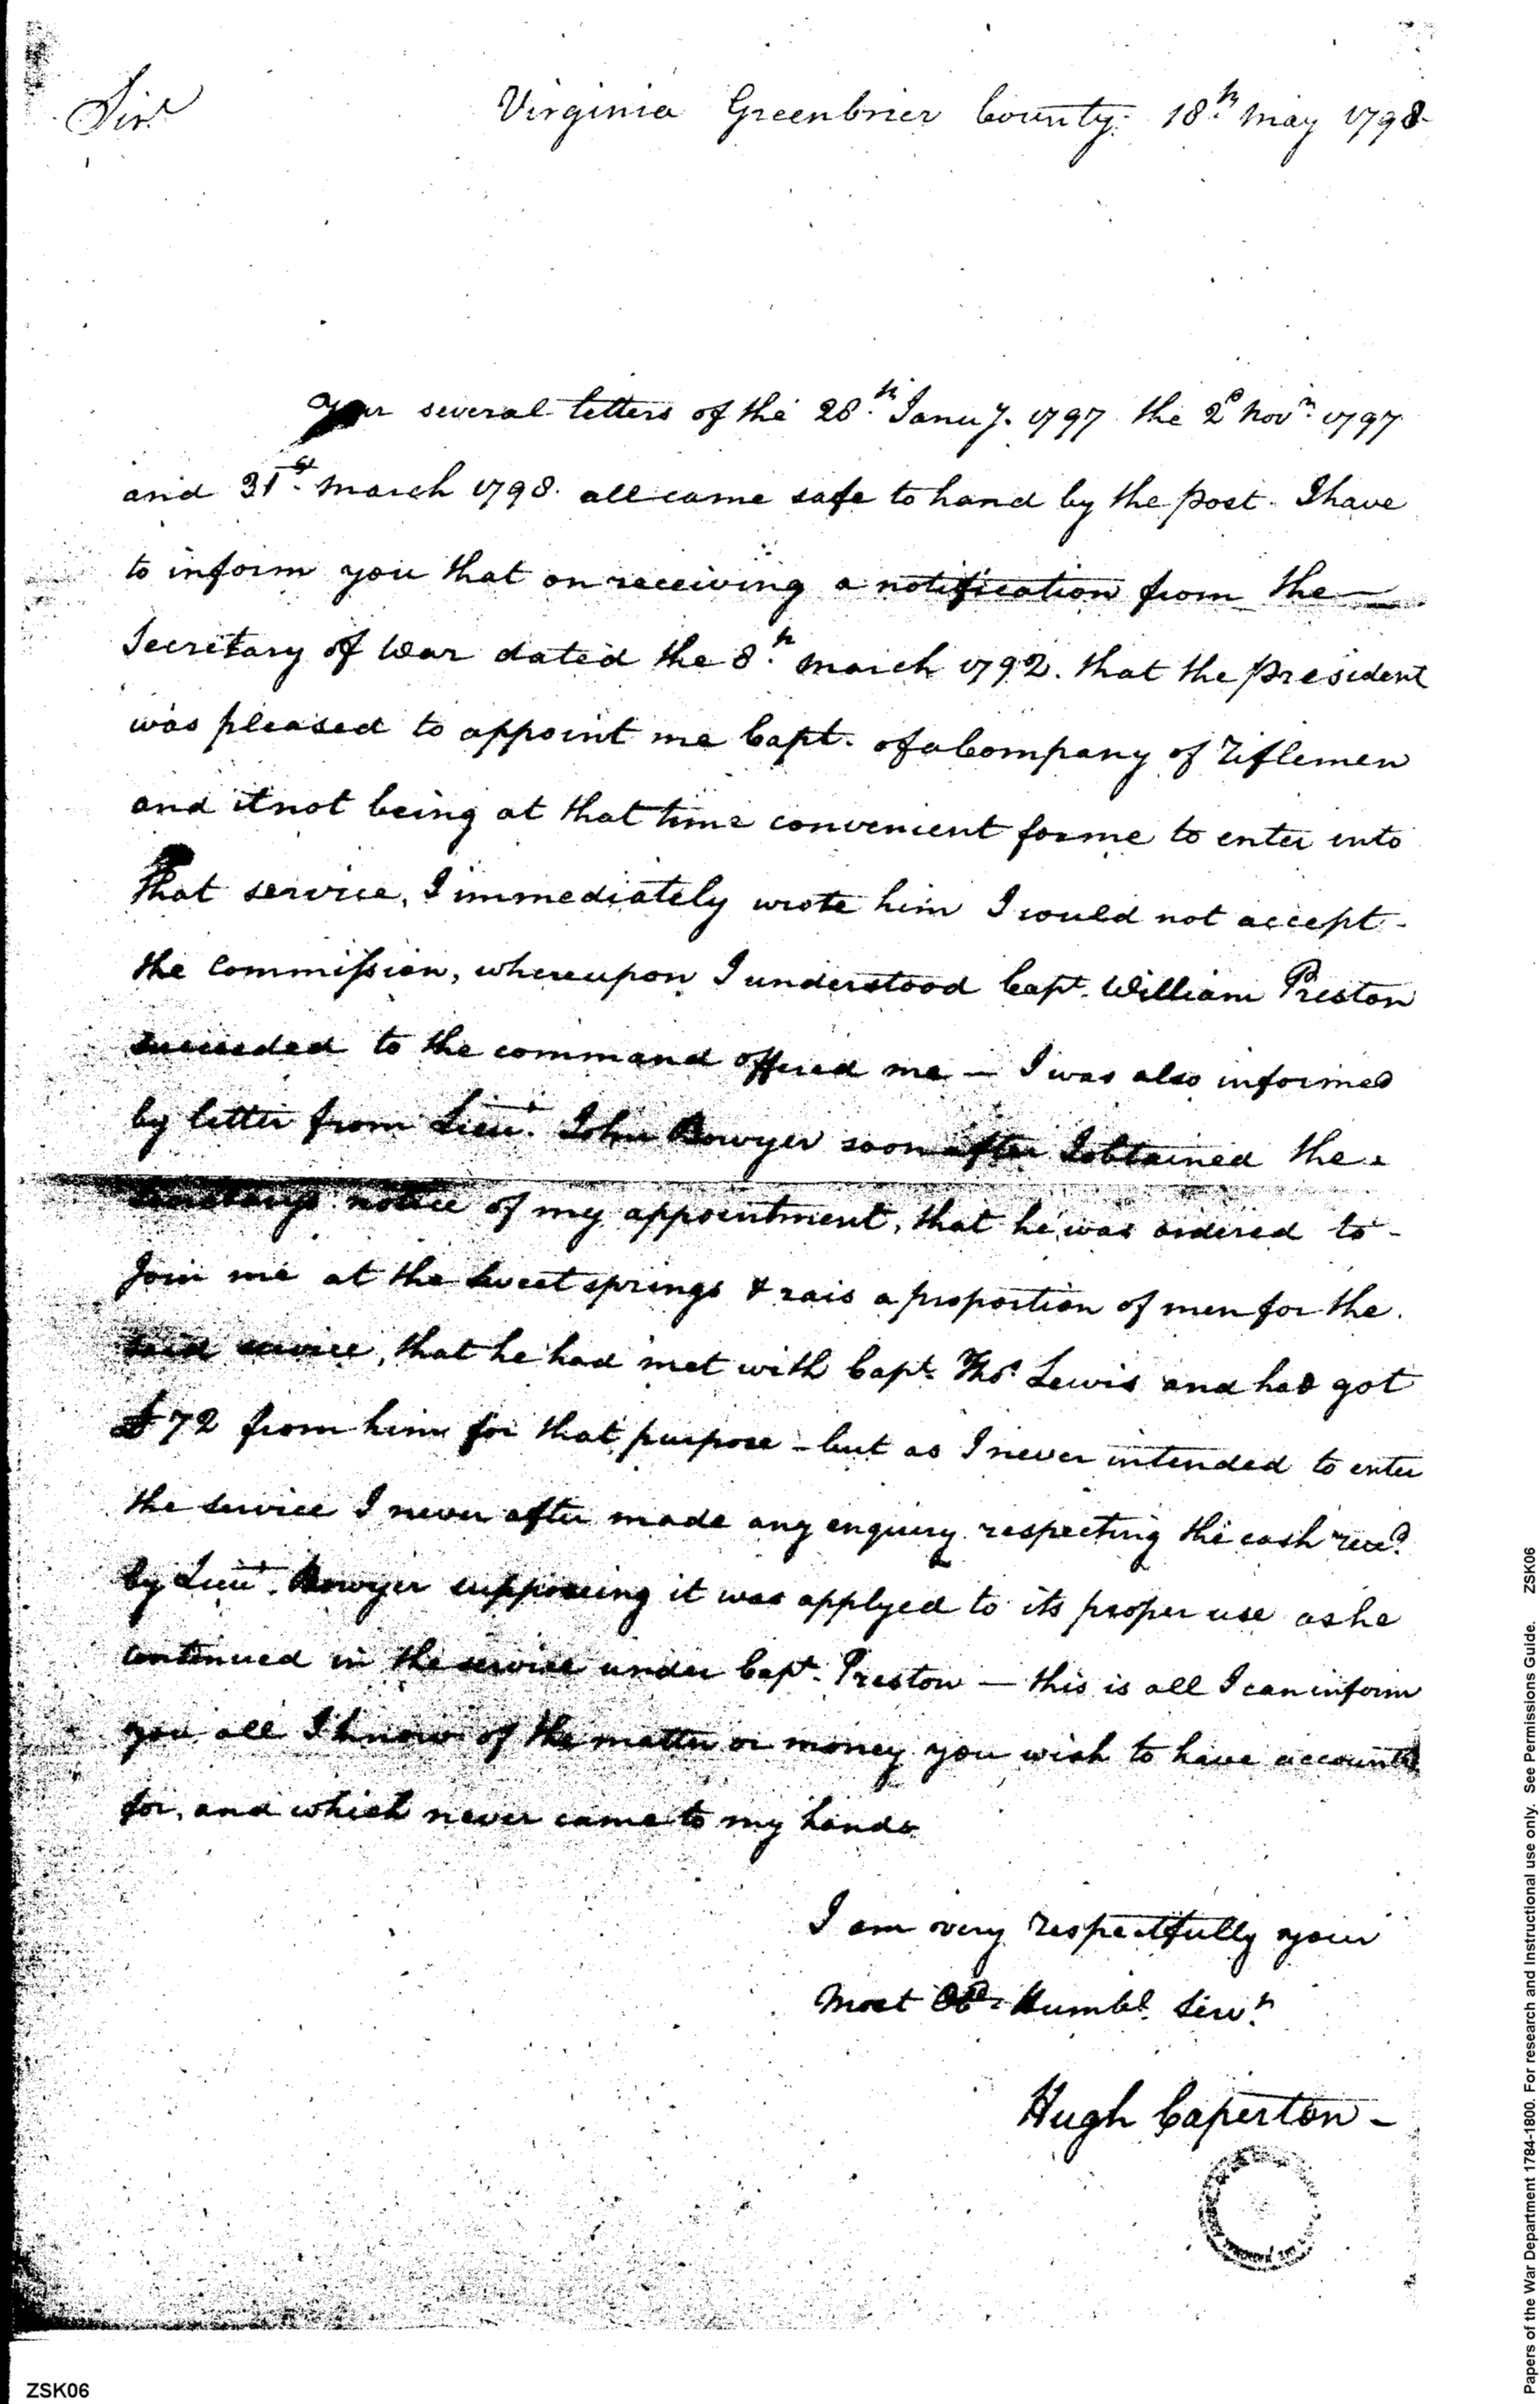 Sir. Virginia Greenbrier County. 18.th May 1798
Your several letters of the 28.th Janu'y. 1797 the 2d Nov.r 1797
and 31st. March 1798. all came safe to hand by the post. I have
to inform you that on receiving a notification from the
Secretary of War dated the 8.th March 1792. that the president
was pleased to appoint me Capt. of a Company of riflemen
and it not being at that time convenient for me to enter into
that service, I immediately wrote him I would not accept -
the Commission, whereupon I understood Capt. William Preston
succeeded to the command offered me — I was also informed
by letter from Lieut. John Bowyer soon after I obtained the
Secretarys notice of my appointment, that he was ordered to -
Join me at the Sweet springs & rais a proportion of men for the.
said service, that he had met with Capt. Thos. Lewis and had got
$72 from him for that purpose - but as I never intended to enter
the service I never after made any enquiry respecting the cash recd.
by Lieut. Bowyer supposeing it was applyed to its proper use as he
continued in the service under Capt. Preston — this is all I can inform
you all I know of the matter or money you wish to have accounted
for, and which never came to my hands.
I am very respectfully your
Most Obd. Humbl. Serv.t
Hugh Caperton -
ZSK06
Papers of the War Department 1784-1800. For research and Instructional use only. See Permissions Guide. ZSK06